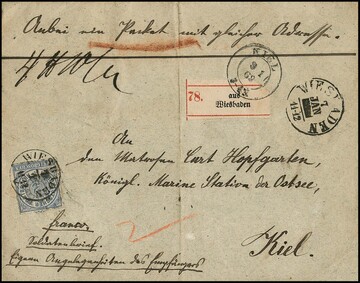 Anbei ein Packet mit gleicher Adresse.
KIEL
9 1
69
WIESBADEN
7
JAN
11-12
78.
aus
Wiesbaden
An
den Matrosen Curt Hopfgarten,
Königl. Marine Station der Ostsee,
Kiel.
WIESBADEN
franco
Soldatenbrief.
Eigene Angelegenheiten des Empfängers